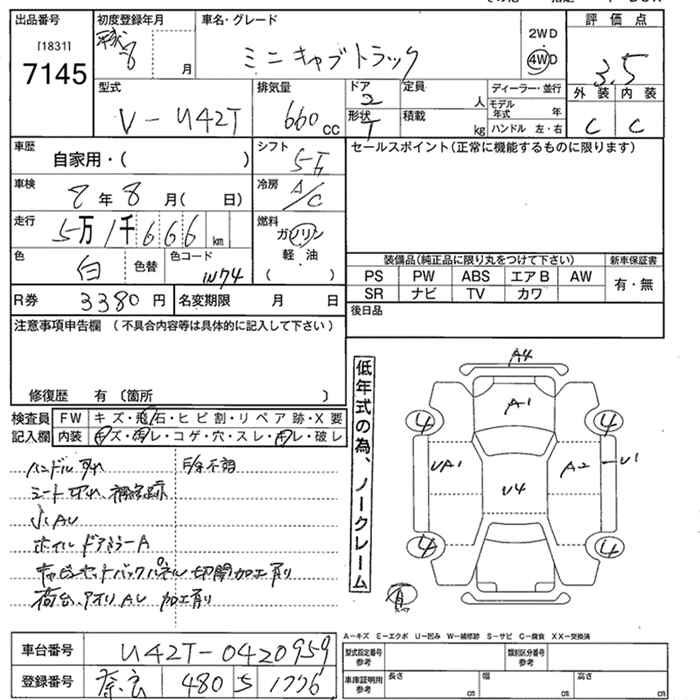 出品番号 初度登録年月 車名・グレード 評価点
[1831] 平成8 月 ミニキャブトラック 2WD 4WD 3.5
7145
型式 排気量 ドア 定員 ディーラー・並行 外装 内装
V-U42T 660cc 2 人 モデル年式 年 C C
形状 T 積載 kg ハンドル 左・右
車歴 自家用・( ) シフト 5F セールスポイント(正常に機能するものに限ります)
車検 8年8月( 日) 冷房 A/C
走行 5万1千666km 燃料 ガソリン 軽油 ( )
色 白 色替 色コード W74 装備品(純正品に限り丸をつけて下さい) 新車保証書
PS PW ABS エアB AW 有・無
R券 3380円 名変期限 月 日 SR ナビ TV カワ
後日品
注意事項申告欄(不具合内容等は具体的に記入して下さい)
修復歴 有〔箇所 〕
検査員記入欄 FW キズ・飛石・ヒビ割・リペア跡・X要
内装 キズ・汚レ・コゲ・穴・スレ・キレ・破レ
低年式の為、ノークレーム
ハンドル
シート切れ、補修跡
小AU
ホイルドアミラーA
切開加工有り
荷台、アオリAU 加工有り
A4
A1
4 4
UA1 U4 A2 U1
4 4
A-キズ E-エクボ U-凹み W-補修跡 S-サビ C-腐食 XX-交換済
車台番号 U42T-0420959 型式指定番号 参考 類別区分番号 参考
登録番号 奈良 480 5 1776 車庫証明用 参考 長さ cm 幅 cm 高さ cm